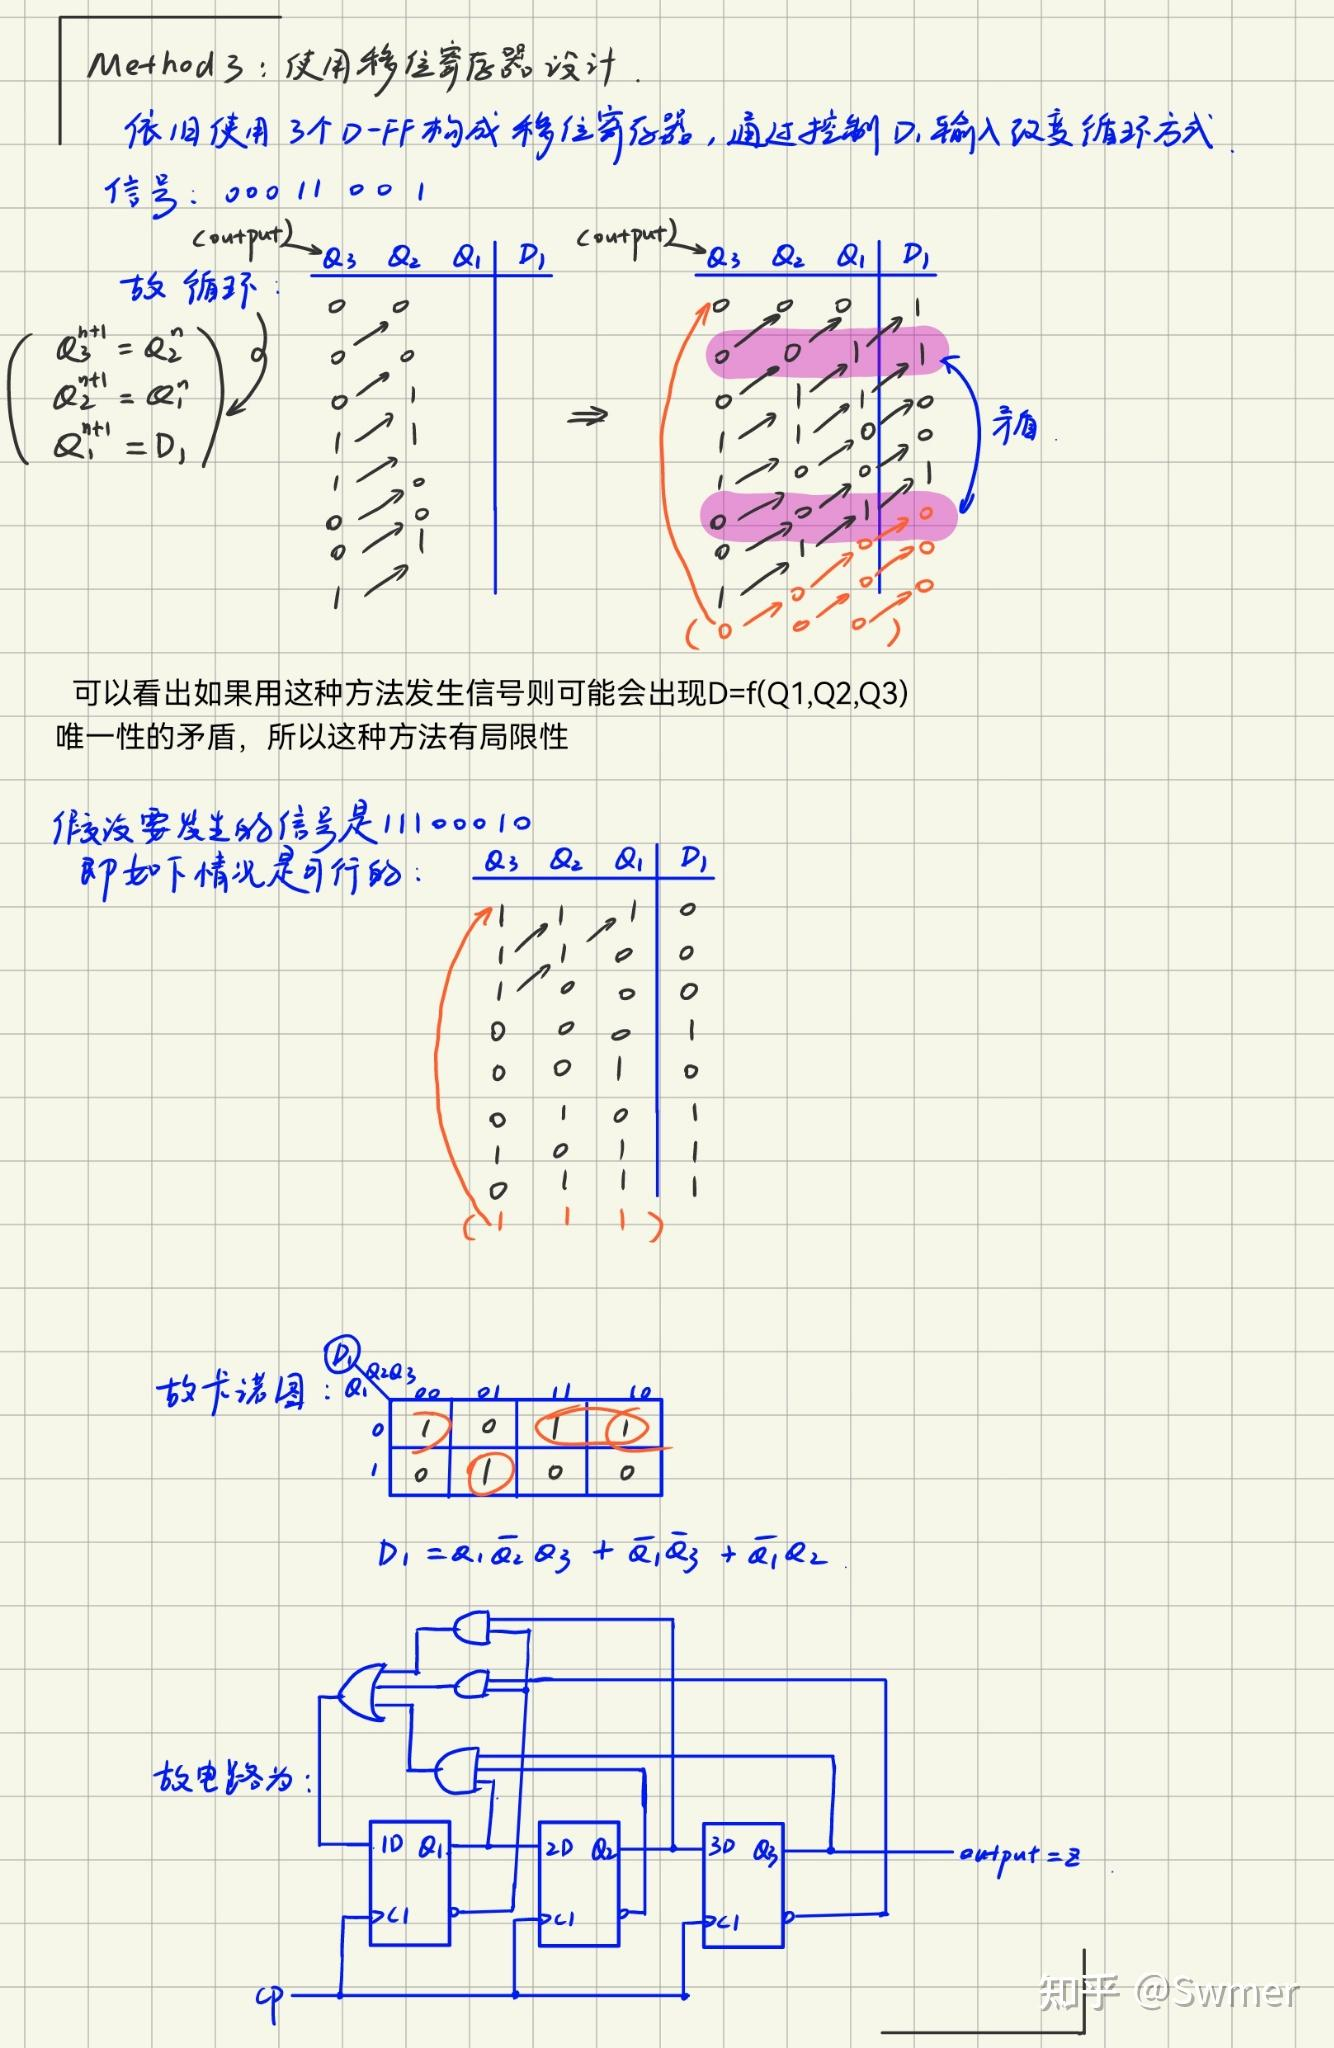 Method 3：使用移位寄存器设计.
依旧使用3个D-FF构成移位寄存器，通过控制D₁输入改变循环方式.
信号：00011001
(output) Q₃ Q₂ Q₁ D₁
(output) Q₃ Q₂ Q₁ D₁
故循环：
Q₃ⁿ⁺¹ = Q₂ⁿ
Q₂ⁿ⁺¹ = Q₁ⁿ
Q₁ⁿ⁺¹ = D₁
0 0
0 0
0 1
1 1
1 0
0 0
0 1
1
⇒
0 0 0 1
0 0 1 1
0 1 1 0
1 1 0 0
1 0 0 1
0 0 1 0
0 1 0 0
1 0 0 0
(0 0 0)
矛盾.
可以看出如果用这种方法发生信号则可能会出现D=f(Q1,Q2,Q3)
唯一性的矛盾，所以这种方法有局限性
假设要发生的信号是11100010
即如下情况是可行的：
Q₃ Q₂ Q₁ D₁
1 1 1 0
1 1 0 0
1 0 0 0
0 0 0 1
0 0 1 0
0 1 0 1
1 0 1 1
0 1 1 1
(1 1 1)
故卡诺图：
D₁
Q₁ Q₂Q₃ 00 01 11 10
0 1 0 1 1
1 0 1 0 0
D₁ = Q₁Q̅₂Q₃ + Q̅₁Q̅₃ + Q̅₁Q₂.
故电路为：
1D Q₁ 2D Q₂ 3D Q₃ output = z
C1 C1 C1
CP
知乎 @Swmer